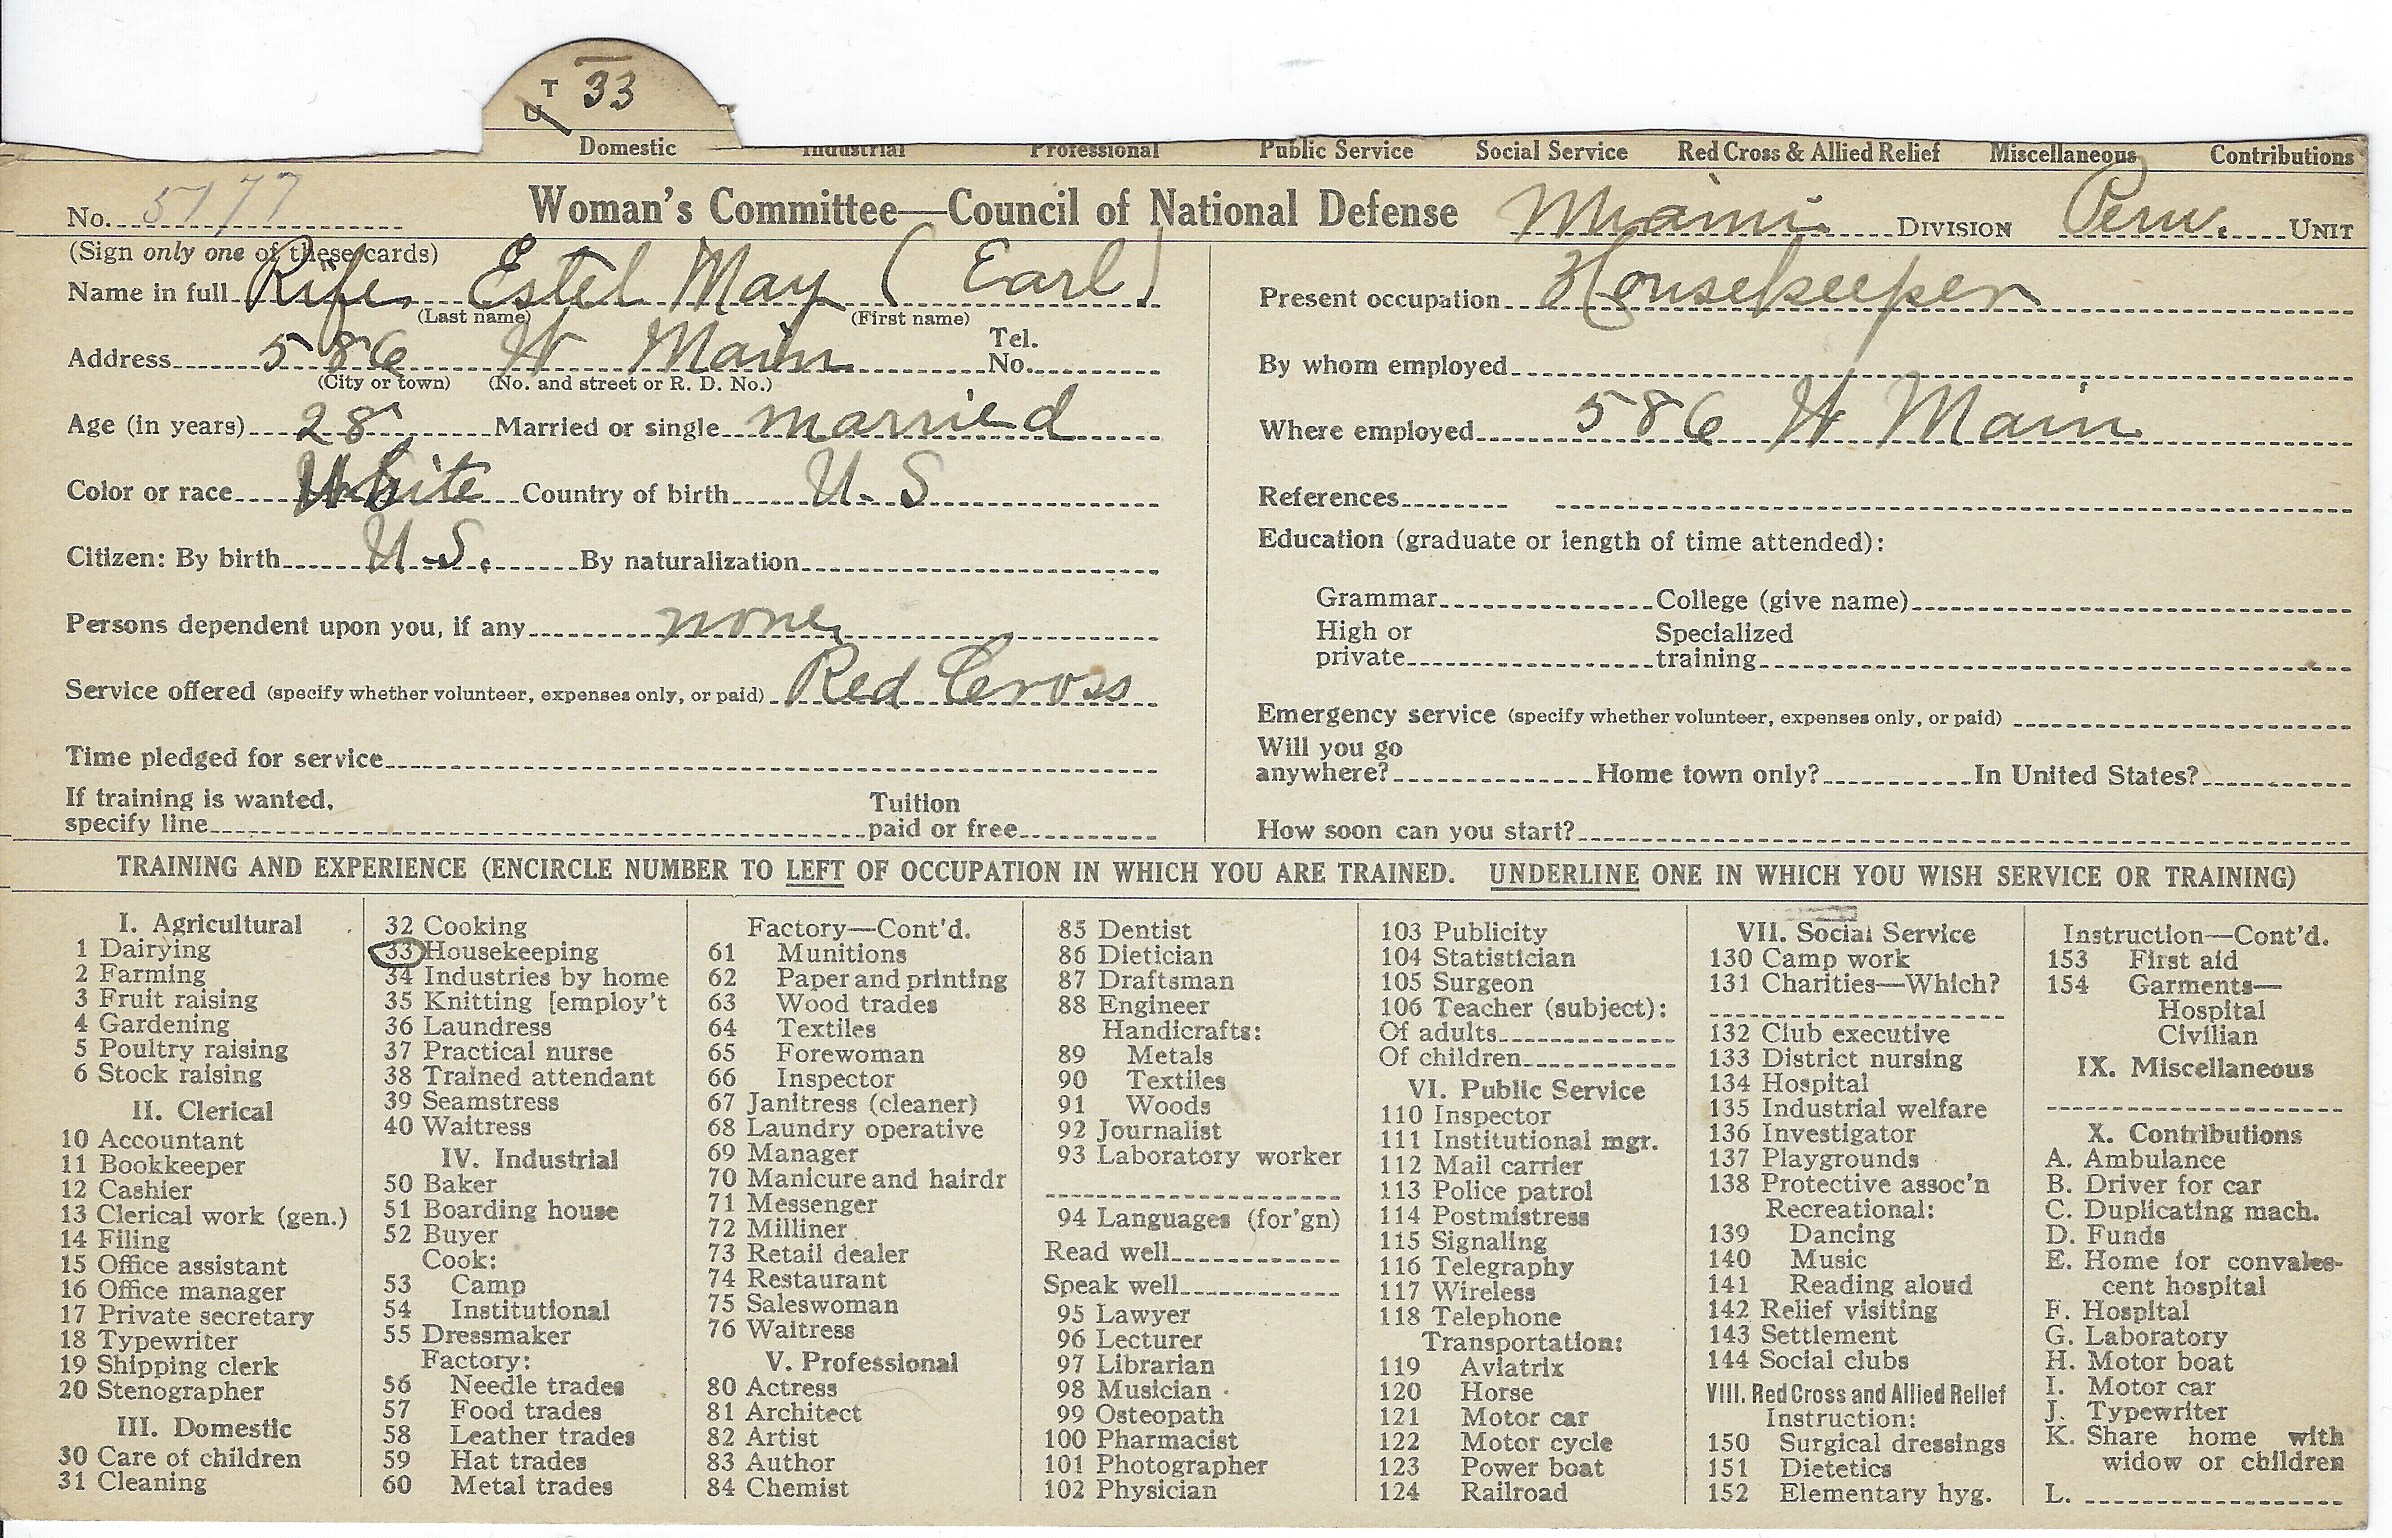 T 33
U
Domestic Industrial Professional Public Service Social Service Red Cross & Allied Relief Miscellaneous Contributions
No. 5177 Woman's Committee—Council of National Defense Miami. DIVISION Peru. UNIT
(Sign only one of these cards)
Name in full Rife, Estel May (Earl)
(Last name) (First name)
Address 586 W Main Tel. No.
(City or town) (No. and street or R. D. No.)
Age (in years) 28 Married or single married
Color or race White Country of birth U. S
Citizen: By birth U. S. By naturalization
Persons dependent upon you, if any none
Service offered (specify whether volunteer, expenses only, or paid) Red Cross
Time pledged for service
If training is wanted, Tuition
specify line paid or free
Present occupation Housekeeper
By whom employed
Where employed 586 W Main
References
Education (graduate or length of time attended):
Grammar College (give name)
High or Specialized
private training
Emergency service (specify whether volunteer, expenses only, or paid)
Will you go
anywhere? Home town only? In United States?
How soon can you start?
TRAINING AND EXPERIENCE (ENCIRCLE NUMBER TO LEFT OF OCCUPATION IN WHICH YOU ARE TRAINED. UNDERLINE ONE IN WHICH YOU WISH SERVICE OR TRAINING)
I. Agricultural
1 Dairying
2 Farming
3 Fruit raising
4 Gardening
5 Poultry raising
6 Stock raising
II. Clerical
10 Accountant
11 Bookkeeper
12 Cashier
13 Clerical work (gen.)
14 Filing
15 Office assistant
16 Office manager
17 Private secretary
18 Typewriter
19 Shipping clerk
20 Stenographer
III. Domestic
30 Care of children
31 Cleaning
32 Cooking
33 Housekeeping
34 Industries by home
35 Knitting [employ't
36 Laundress
37 Practical nurse
38 Trained attendant
39 Seamstress
40 Waitress
IV. Industrial
50 Baker
51 Boarding house
52 Buyer
Cook:
53 Camp
54 Institutional
55 Dressmaker
Factory:
56 Needle trades
57 Food trades
58 Leather trades
59 Hat trades
60 Metal trades
Factory—Cont'd.
61 Munitions
62 Paper and printing
63 Wood trades
64 Textiles
65 Forewoman
66 Inspector
67 Janitress (cleaner)
68 Laundry operative
69 Manager
70 Manicure and hairdr
71 Messenger
72 Milliner
73 Retail dealer
74 Restaurant
75 Saleswoman
76 Waitress
V. Professional
80 Actress
81 Architect
82 Artist
83 Author
84 Chemist
85 Dentist
86 Dietician
87 Draftsman
88 Engineer
Handicrafts:
89 Metals
90 Textiles
91 Woods
92 Journalist
93 Laboratory worker
94 Languages (for'gn)
Read well
Speak well
95 Lawyer
96 Lecturer
97 Librarian
98 Musician
99 Osteopath
100 Pharmacist
101 Photographer
102 Physician
103 Publicity
104 Statistician
105 Surgeon
106 Teacher (subject):
Of adults
Of children
VI. Public Service
110 Inspector
111 Institutional mgr.
112 Mail carrier
113 Police patrol
114 Postmistress
115 Signaling
116 Telegraphy
117 Wireless
118 Telephone
Transportation:
119 Aviatrix
120 Horse
121 Motor car
122 Motor cycle
123 Power boat
124 Railroad
VII. Social Service
130 Camp work
131 Charities—Which?
132 Club executive
133 District nursing
134 Hospital
135 Industrial welfare
136 Investigator
137 Playgrounds
138 Protective assoc'n
Recreational:
139 Dancing
140 Music
141 Reading aloud
142 Relief visiting
143 Settlement
144 Social clubs
VIII. Red Cross and Allied Relief
Instruction:
150 Surgical dressings
151 Dietetics
152 Elementary hyg.
Instruction—Cont'd.
153 First aid
154 Garments—
Hospital
Civilian
IX. Miscellaneous
X. Contributions
A. Ambulance
B. Driver for car
C. Duplicating mach.
D. Funds
E. Home for convales-
cent hospital
F. Hospital
G. Laboratory
H. Motor boat
I. Motor car
J. Typewriter
K. Share home with
widow or children
L.